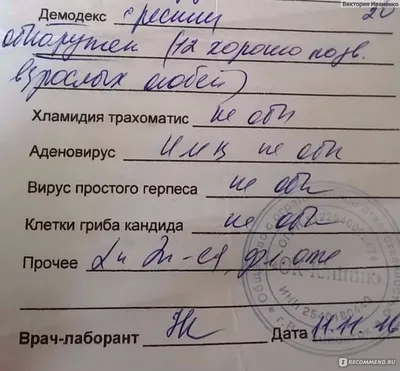 Виктория Иваненко
Демодекс ресниц 20
обнаружен (12 хорошо подв.
взрослых особей)
Хламидия трахоматис не обн
Аденовирус не обн
Вирус простого герпеса не обн
Клетки гриба кандида не обн
Прочее
ИНН
Врач-лаборант Дата 11.11.16
IRECOMMEND.RU